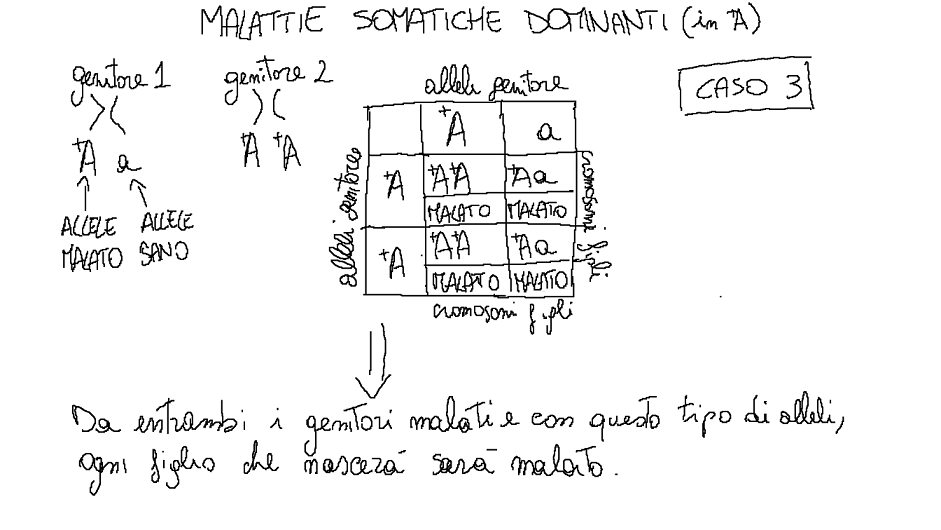 MALATTIE SOMATICHE DOMINANTI (in ⁺A)
CASO 3
genitore 1
genitore 2
⁺A a
⁺A ⁺A
ALLELE MALATO
ALLELE SANO
alleli genitore
alleli genitore
⁺A a
⁺A ⁺A⁺A ⁺Aa
MALATO MALATO
⁺A ⁺A⁺A ⁺Aa
MALATO MALATO
cromosomi figli
cromosomi figli
Da entrambi i genitori malati e con questo tipo di alleli,
ogni figlio che nascerà sarà malato.